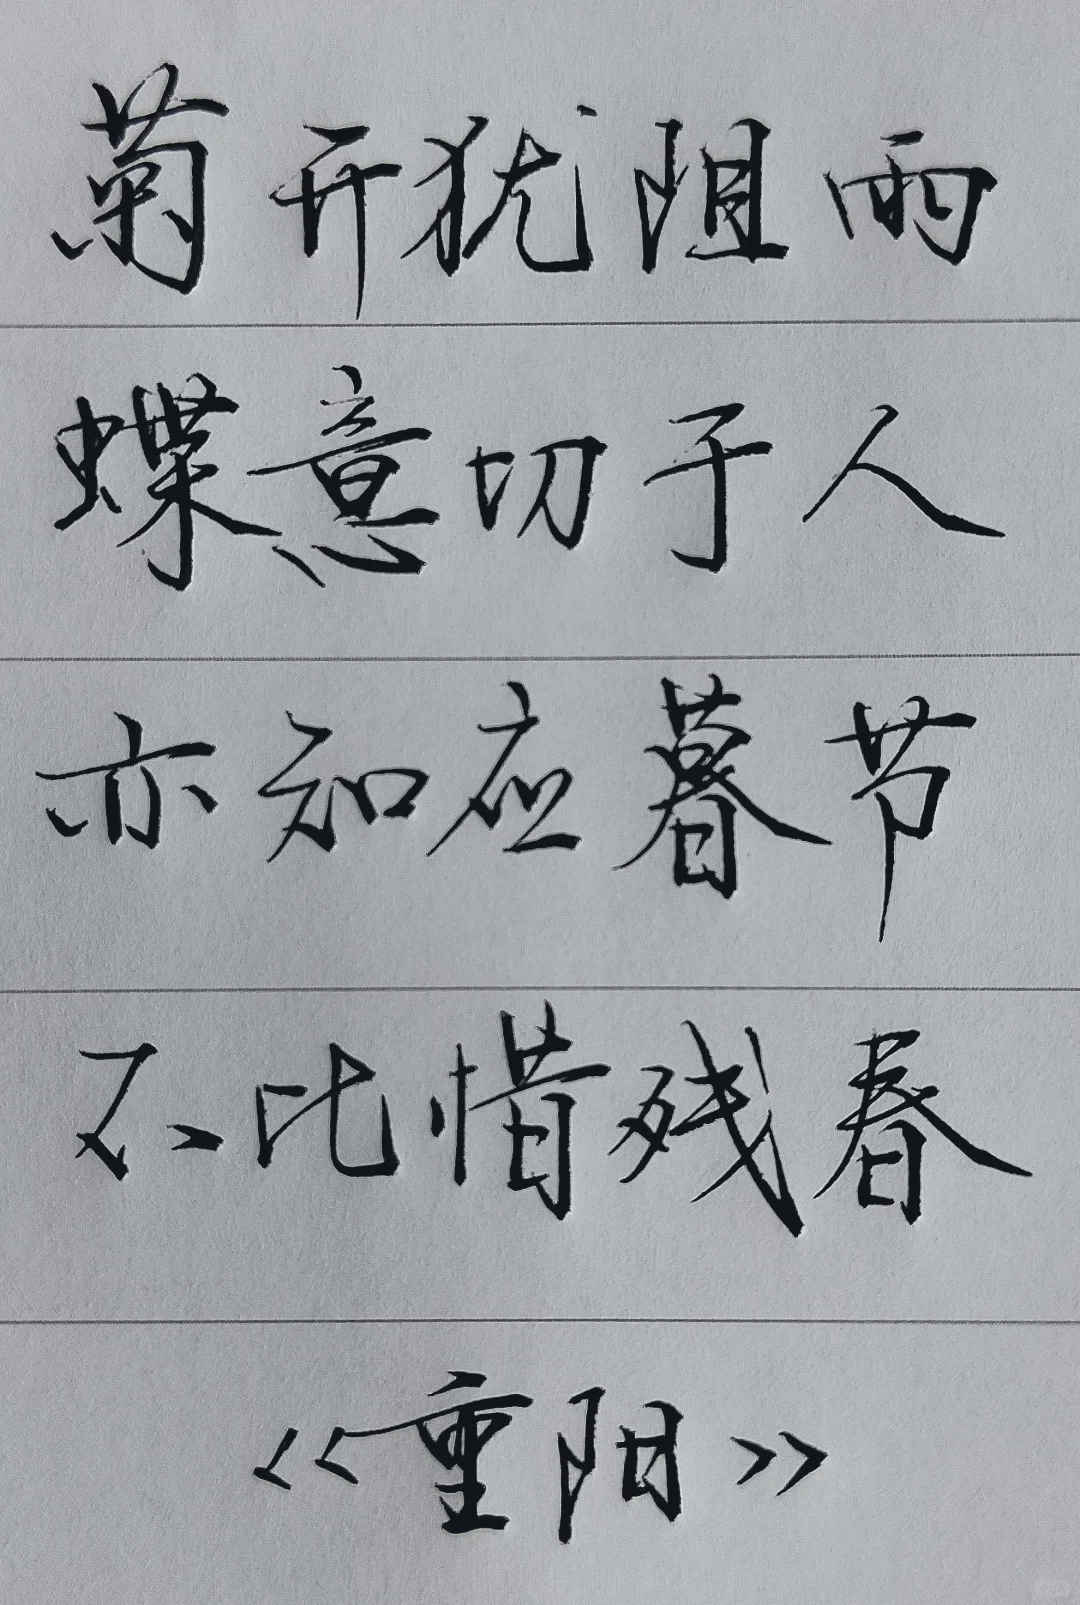 菊开犹阻雨
蝶意切于人
亦知应暮节
不比惜残春
《重阳》